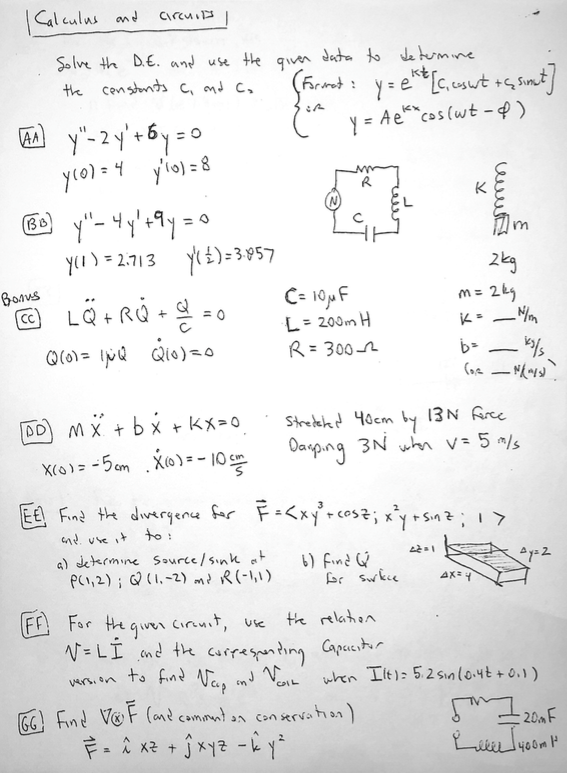 Calculus and circuits
Solve the D.E. and use the given data to determine
the constants C₁ and C₂
(Format: y = e^{kt}[C₁ cos ωt + C₂ sin ωt]
or y = Ae^{kx} cos(ωt - φ)
AA y'' - 2y' + 6y = 0
y(0) = 4 y'(0) = 8
R
N
L
C
K
m
2kg
BB y'' - 4y' + 9y = 0
y(1) = 2.713 y'(½) = 3.857
Bonus
CC LQ̈ + RQ̇ + Q/C = 0
Q(0) = 1μQ Q̇(0) = 0
C = 10μF
L = 200mH
R = 300Ω
m = 2kg
K = __ N/m
b = __ kg/s
(or __ N/(m/s))
DD mẍ + bẋ + Kx = 0
x(0) = -5cm . ẋ(0) = -10 cm/s
Stretched 40cm by 13N force
Damping 3N when v = 5 m/s
EE Find the divergence for F⃗ = <xy³ + cosz; x²y + sinz; 1>
and use it to:
a) determine source/sink at
P(1,2); Q(1,-2) and R(-1,1)
b) find Q̇
for surface
Δz=1
Δy=2
Δx=4
FF For the given circuit, use the relation
V = Lİ and the corresponding Capacitor
version to find V_cap and V_coil when I(t) = 5.2 sin(0.4t + 0.1)
GG Find ∇⊗F⃗ (and comment on conservation)
F⃗ = î xz + ĵ xyz - k̂ y²
20mF
400mH